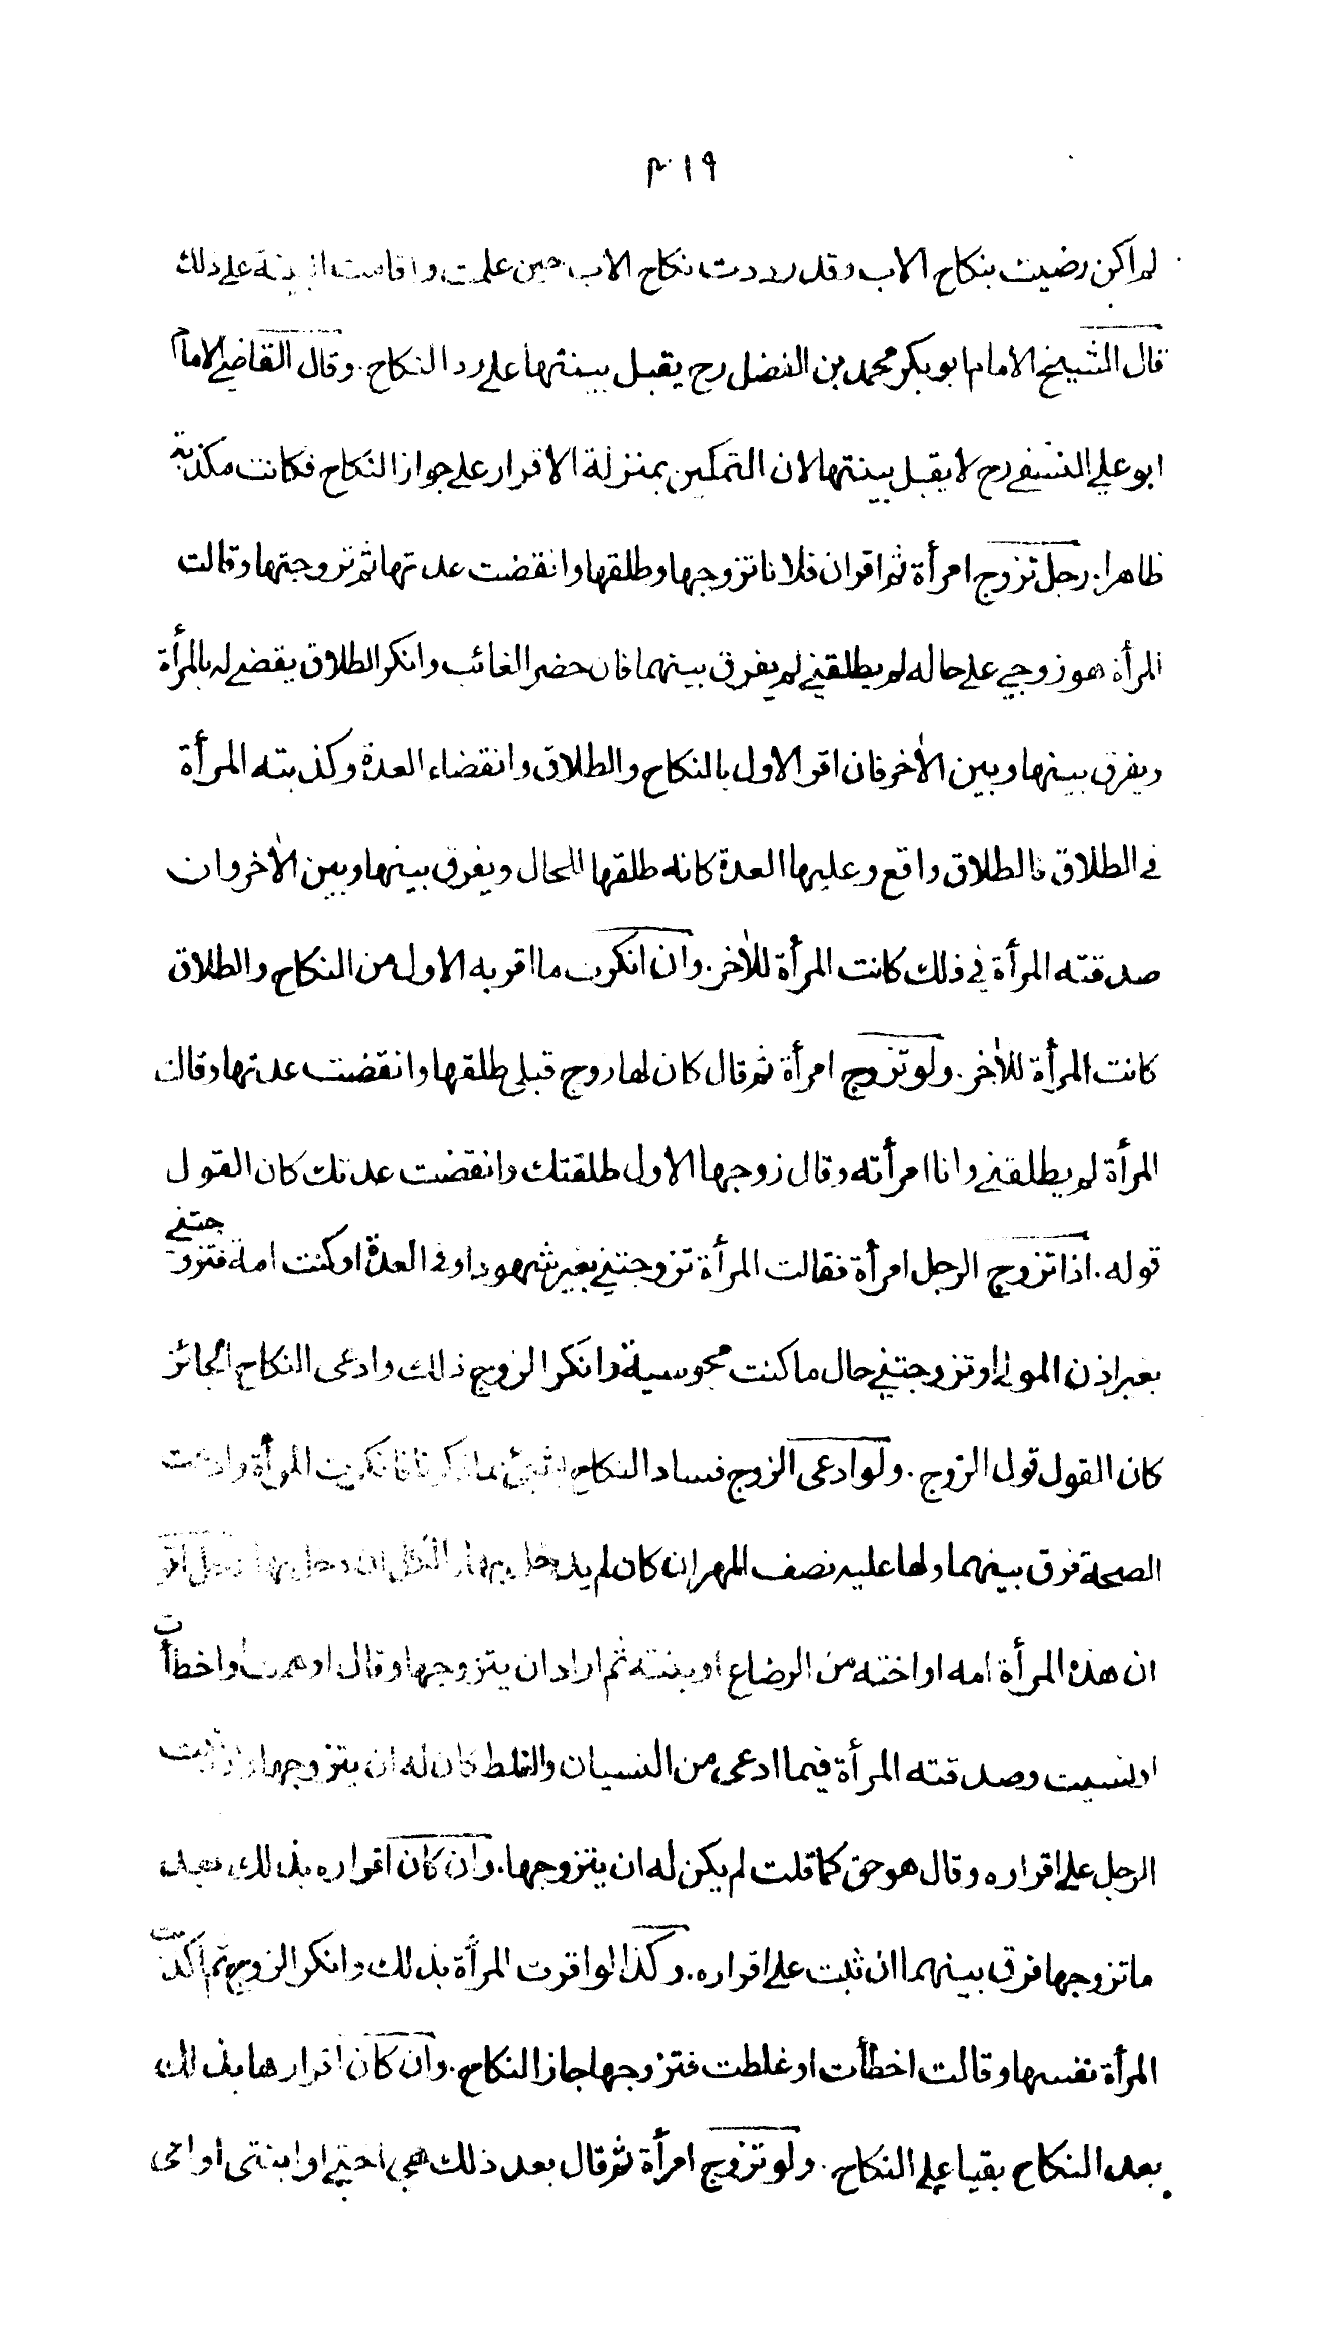 ٣١٩
لم اكن رضيت بنكاح الاب وقد رددت نكاح الاب حين علمت واقامت البينة على ذلك
قال الشيخ الامام ابو بكر محمد بن الفضل رح يقبل بينتها على رد النكاح. وقال القاضي الامام
ابو علي النسفي رح لا يقبل بينتها لان التمكين بمنزلة الاقرار على جواز النكاح فكانت مكذبة
ظاهرا. رجل تزوج امرأة ثم اقر ان فلانا تزوجها وطلقها وانقضت عدتها ثم تزوجتها وقالت
المرأة هو زوجي على حاله لم يطلقني لم يفرق بينهما فان حضر الغائب وانكر الطلاق يقضى له بالمرأة
ويفرق بينها وبين الاٰخر فان اقر الاول بالنكاح والطلاق وانقضاء العدة وكذبته المرأة
في الطلاق فالطلاق واقع وعليها العدة كانه طلقها للحال ويفرق بينها وبين الاٰخر وان
صدقته المرأة في ذلك كانت المرأة للاٰخر. وان انكرت ما اقر به الاول من النكاح والطلاق
كانت المرأة للاٰخر. ولو تزوج امرأة ثم قال كان لها زوج قبلي طلقها وانقضت عدتها وقالت
المرأة لم يطلقني وانا امرأته وقال زوجها الاول طلقتك وانقضت عدتك كان القول
قوله. اذا تزوج الرجل امرأة فقالت المرأة تزوجتني بغير شهود او في العدة او كنت امة فتزوجتني
بغير اذن المولى او تزوجتني حال ما كنت مجوسية وانكر الزوج ذلك وادعى النكاح الجائز
كان القول قول الزوج. ولو ادعى الزوج فساد النكاح بشئ مما ذكرنا فانكرت المرأة وادعت
الصحة فرق بينهما ولها عليه نصف المهر ان كان لم يدخل بها والكل ان دخل بها رجل اقر
ان هذه المرأة امه او اخته من الرضاع او بنته ثم اراد ان يتزوجها وقال اوهمت او اخطأت
او نسيت وصدقته المرأة فيما ادعى من النسيان والغلط كان له ان يتزوجها ثبت
الرجل على اقراره وقال هو حق كما قلت لم يكن له ان يتزوجها. وان كان اقراره بذلك بعد
ما تزوجها فرق بينهما ان ثبت على اقراره. وكذا لو اقرت المرأة بذلك وانكر الزوج ثم اكذبت
المرأة نفسها وقالت اخطأت او غلطت فتزوجها جاز النكاح. وان كان اقرارها بذلك
بعد النكاح بقيا على النكاح. ولو تزوج امرأة ثم قال بعد ذلك هي اختي او ابنتي او امي